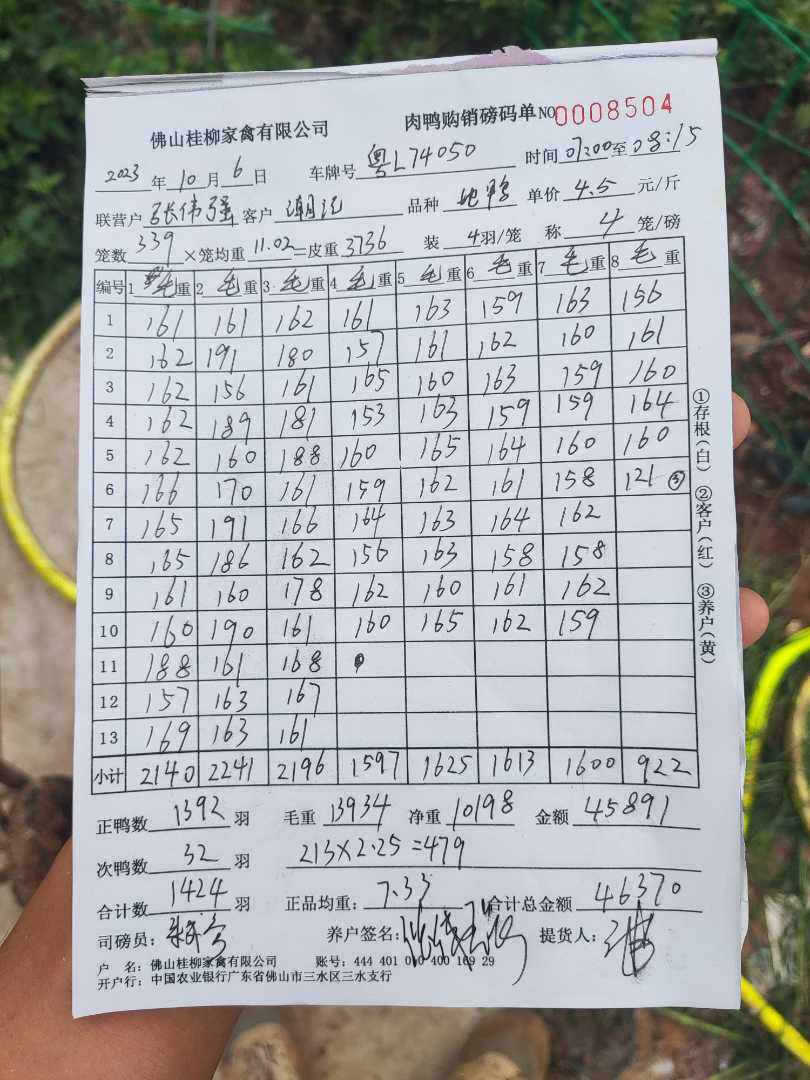 佛山桂柳家禽有限公司 肉鸭购销磅码单 NO 0008504
2023年10月6日 车牌号 粤L74050 时间 07:00至08:15
联营户 张伟强 客户 潮记 品种 地鸭 单价 4.5 元/斤
笼数 339 ×笼均重 11.02 =皮重 3736 装 4羽/笼 称 4 笼/磅
编号 1 毛重 2 毛重 3 毛重 4 毛重 5 毛重 6 毛重 7 毛重 8 毛重
1 161 161 162 161 163 159 163 156
2 162 191 180 157 161 162 160 161
3 162 156 161 165 160 163 159 160
4 162 189 181 153 163 159 159 164
5 162 160 188 160 165 164 160 160
6 166 170 161 159 162 161 158 121 ③
7 165 191 166 164 163 164 162
8 165 186 162 156 163 158 158
9 161 160 178 162 160 161 162
10 160 190 161 160 165 162 159
11 188 161 168
12 157 163 167
13 169 163 161
小计 2140 2241 2196 1597 1625 1613 1600 922
①存根(白) ②客户(红) ③养户(黄)
正鸭数 1392 羽 毛重 13934 净重 10198 金额 45891
次鸭数 32 羽 213×2.25=479
合计数 1424 羽 正品均重: 7.33 合计总金额 46370
司磅员: 养户签名: 提货人:
户 名: 佛山桂柳家禽有限公司 账号: 444 401 010 400 169 29
开户行: 中国农业银行广东省佛山市三水区三水支行